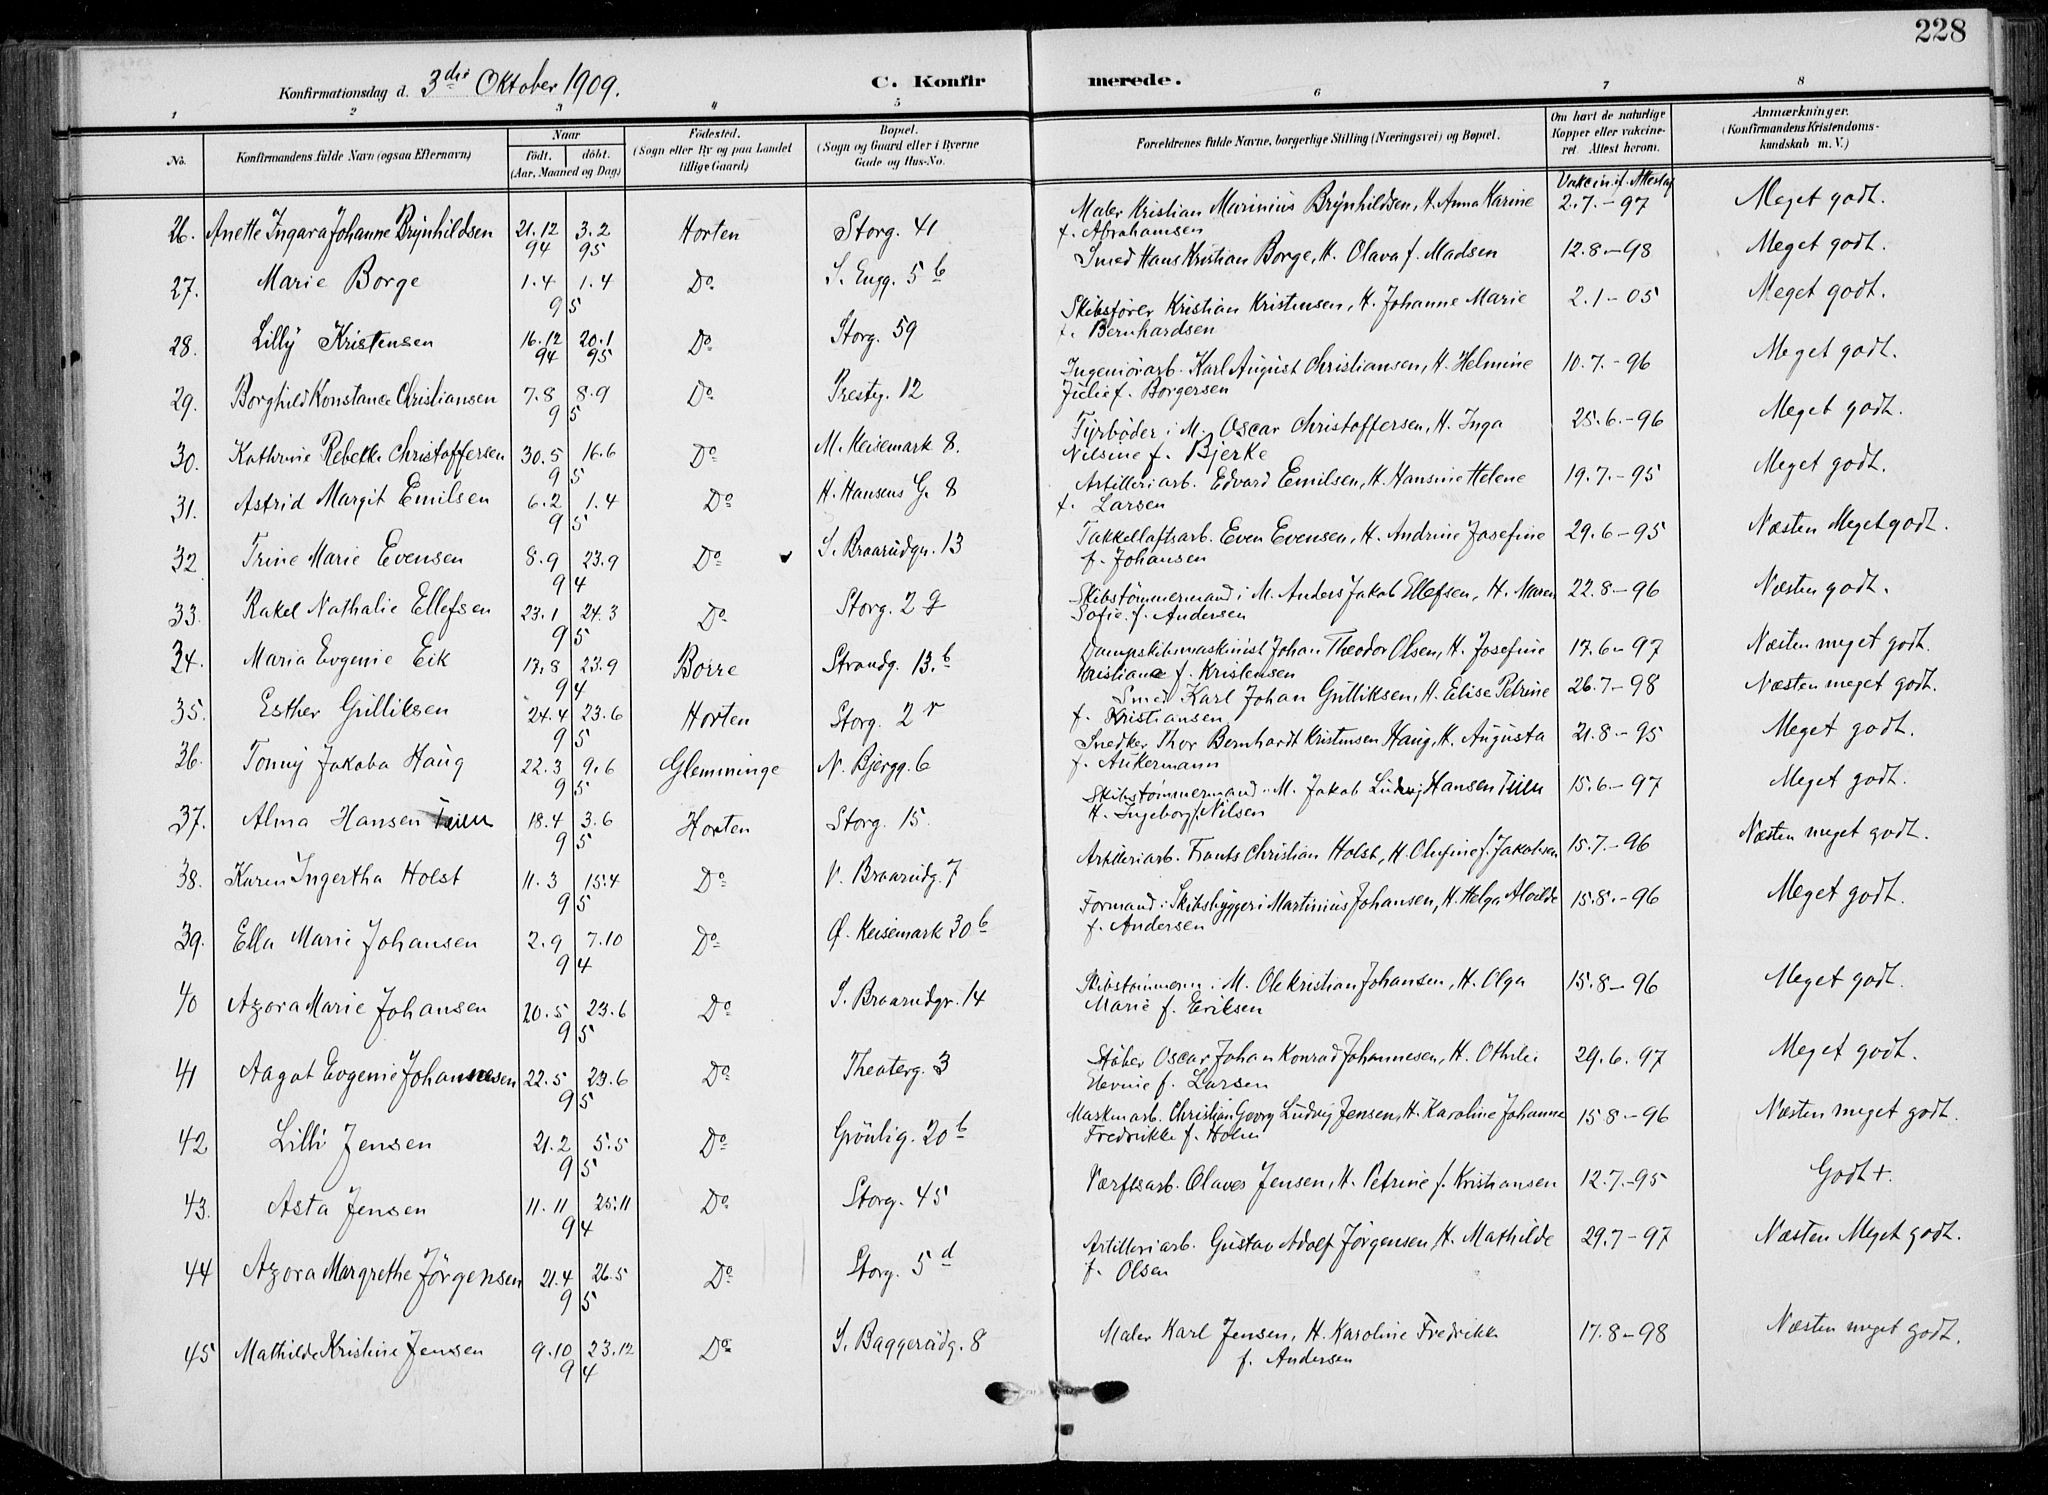 228
Konfirmationsdag d. 3die Oktober 1909. C. Konfirmerede.
1 2 3 4 5 6 7 8
No. Konfirmandens fulde Navn (ogsaa Efternavn) Naar födt. döbt. (Aar, Maaned og Dag) Födested. (Sogn eller By og paa Landet tillige Gaard) Bopæl. (Sogn og Gaard eller i Byerne Gade og Hus-No. Forældrenes fulde Navne, borgerlige Stilling (Næringsvei) og Bopæl. Om havt de naturlige Kopper eller vakcineret. Attest herom. Anmærkninger. (Konfirmandens Kristendomskundskab m. V.)
Vakcin. f. Attestaf
26. Anette Ingara Johanne Brynhildsen 21.12 94 3.2 95 Horten Storg. 41 Maler Kristian Marinius Brynhildsen, H. Anna Karine f. Abrahamsen 2.7.-97 Meget godt.
27. Marie Borge 1.4 1.4 95 Do Ṣ. Engg. 5 b Smed Hans Kristian Borge, H. Olava f. Madsen 12.8-98 Meget godt.
28. Lilly Kristensen 16.12 94 20.1 95 Do Storg. 59 Skibsfører Kristian Kristensen, H. Johanne Marie f. Bernhardsen 2.1-05 Meget godt.
29. Borghild Konstance Christiansen 7.8 8.9 95 Do Presteg. 12 Ingeniörarb. Karl August Christiansen, H. Helmine Julie f. Borgersen 10.7.-96 Meget godt.
30. Kathrine Rebekka Christoffersen 30.5 16.6 95 Do M. Keisemark 8. Fyrbøder i M. Oscar Christoffersen, H. Inga Nilsine f. Bjerke 25.6.-96 Meget godt.
31. Astrid Margit Emilsen 6.2 1.4 95 Do H. Hansens G. 8 Artilleriarb. Edvard Emilsen, H. Hansine Helene f. Larsen 19.7.-95 Meget godt.
32 Trine Marie Evensen 8.9 23.9 94 Do S. Braarudgn. 13 Takkelloftsarb. Even Evensen, H. Andrine Josefine f. Johansen 29.6-95 Næsten Meget godt.
33. Rakel Nathalie Ellefsen 23.1 24.3 95 Do Storg. 2 g Skibstømmermand i M. Anders Jakob Ellefsen, H. Maren Sofie f. Andersen 22.8-96 Næsten godt.
34. Maria Evgenie Eik 17.8 23.9 94 Borre Strandg. 13.b Dampskibsmaskinist Johan Theodor Olsen, H. Josefine Kristiane f. Kristensen 17.6-97 Næsten meget godt.
35. Esther Gulliksen 24.4 23.6 95 Horten Storg. 2 r Smed Karl Johan Gulliksen, H. Elise Petrine f. Kristiansen 26.7-98 Næsten meget godt.
36. Tonny Jakoba Haug 22.3 9.6 95 Glemminge N. Bjergg. 6 Snedker Thor Bernhardt Kristensen Haug, H. Augusta f. Ankermann 21.8-95 Meget godt.
37. Alma Hansen Teien 18.4 3.6 95 Horten Storg. 15. Skibstømmermand i M. Jakob Ludvig Hansen Teien H. Ingeborg f. Nilsen 15.6-97 Meget godt.
38. Karen Ingertha Holst 11.3 15.4 95 Do V. Braarudg. 7 Artilleriarb. Frants Christian Holst, H. Olufine f. Jakobsen 15.7.-96 Næsten meget godt.
39. Ella Marie Johansen 2.9 7.10 94 Do Ø. Keisemark 30 b Formand i Skibsbyggeri Martinius Johansen, H. Helga Alvilde f. Andersen 15.8.-96 Meget godt.
40 Azora Marie Johansen 20.5 23.6 95 Do S. Braarudgr. 14 Skibstömmerm. i M. Ole Kristian Johansen, H. Olga Marie f. Eriksen 15.8-96 Meget godt.
41 Aagot Evgenie Johannesen 22.5 23.6 95 Do Theaterg. 3 Støber Oscar Johan Konrad Johannesen, H. Othilie f. Larsen 29.6.97 Meget godt.
42 Lilli Jensen 21.2 5.5 95 Do Grönlig. 20 b Maskinarb. Christian Georg Ludvig Jensen, H. Karoline Johanne Fredrikke f. Holm 15.8-96 Næsten meget godt.
43. Asta Jensen 11.11 25.11 94 Do Storg. 45 Værftsarb. Olaves Jensen, H. Petrine f. Kristiansen 12.7.-95 Godt +.
44 Azora Margrethe Jörgensen 21.4 26.5 95 Do Storg. 5 d Artilleriarb. Gustav Adolf Jørgensen, H. Mathilde f. Olsen 29.7-97 Næsten Meget godt.
45 Mathilde Kristine Jensen 9.10 23.12 94 Do S. Baggerudg. 8 Maler Karl Jensen, H. Karoline Fredrikke f. Andersen 17.8-98 Næsten meget godt.